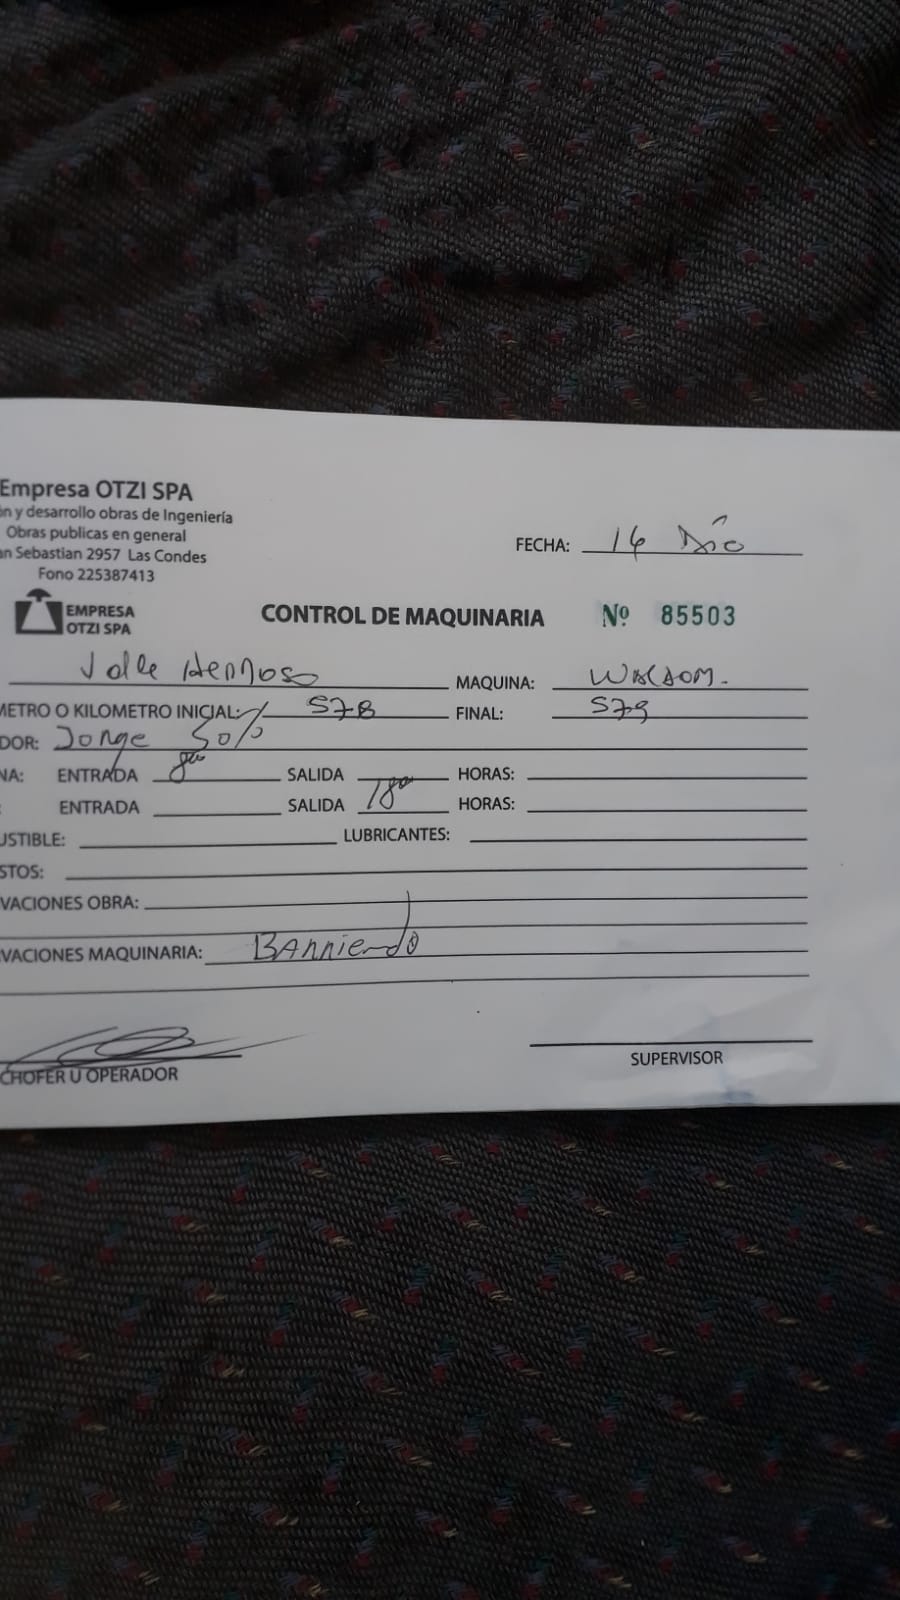 Empresa OTZI SPA
ón y desarrollo obras de Ingeniería
Obras publicas en general
an Sebastian 2957 Las Condes
Fono 225387413
FECHA: 14 Dic
EMPRESA
OTZI SPA
CONTROL DE MAQUINARIA Nº 85503
Valle Hermoso MAQUINA: Waldom.
METRO O KILOMETRO INICIAL: 578 FINAL: 579
DOR: Jorge 50%
NA: ENTRADA 8⁰⁰ SALIDA HORAS:
: ENTRADA SALIDA 18⁰⁰ HORAS:
USTIBLE: LUBRICANTES:
STOS:
VACIONES OBRA:
VACIONES MAQUINARIA: BArriendo
CHOFER U OPERADOR
SUPERVISOR